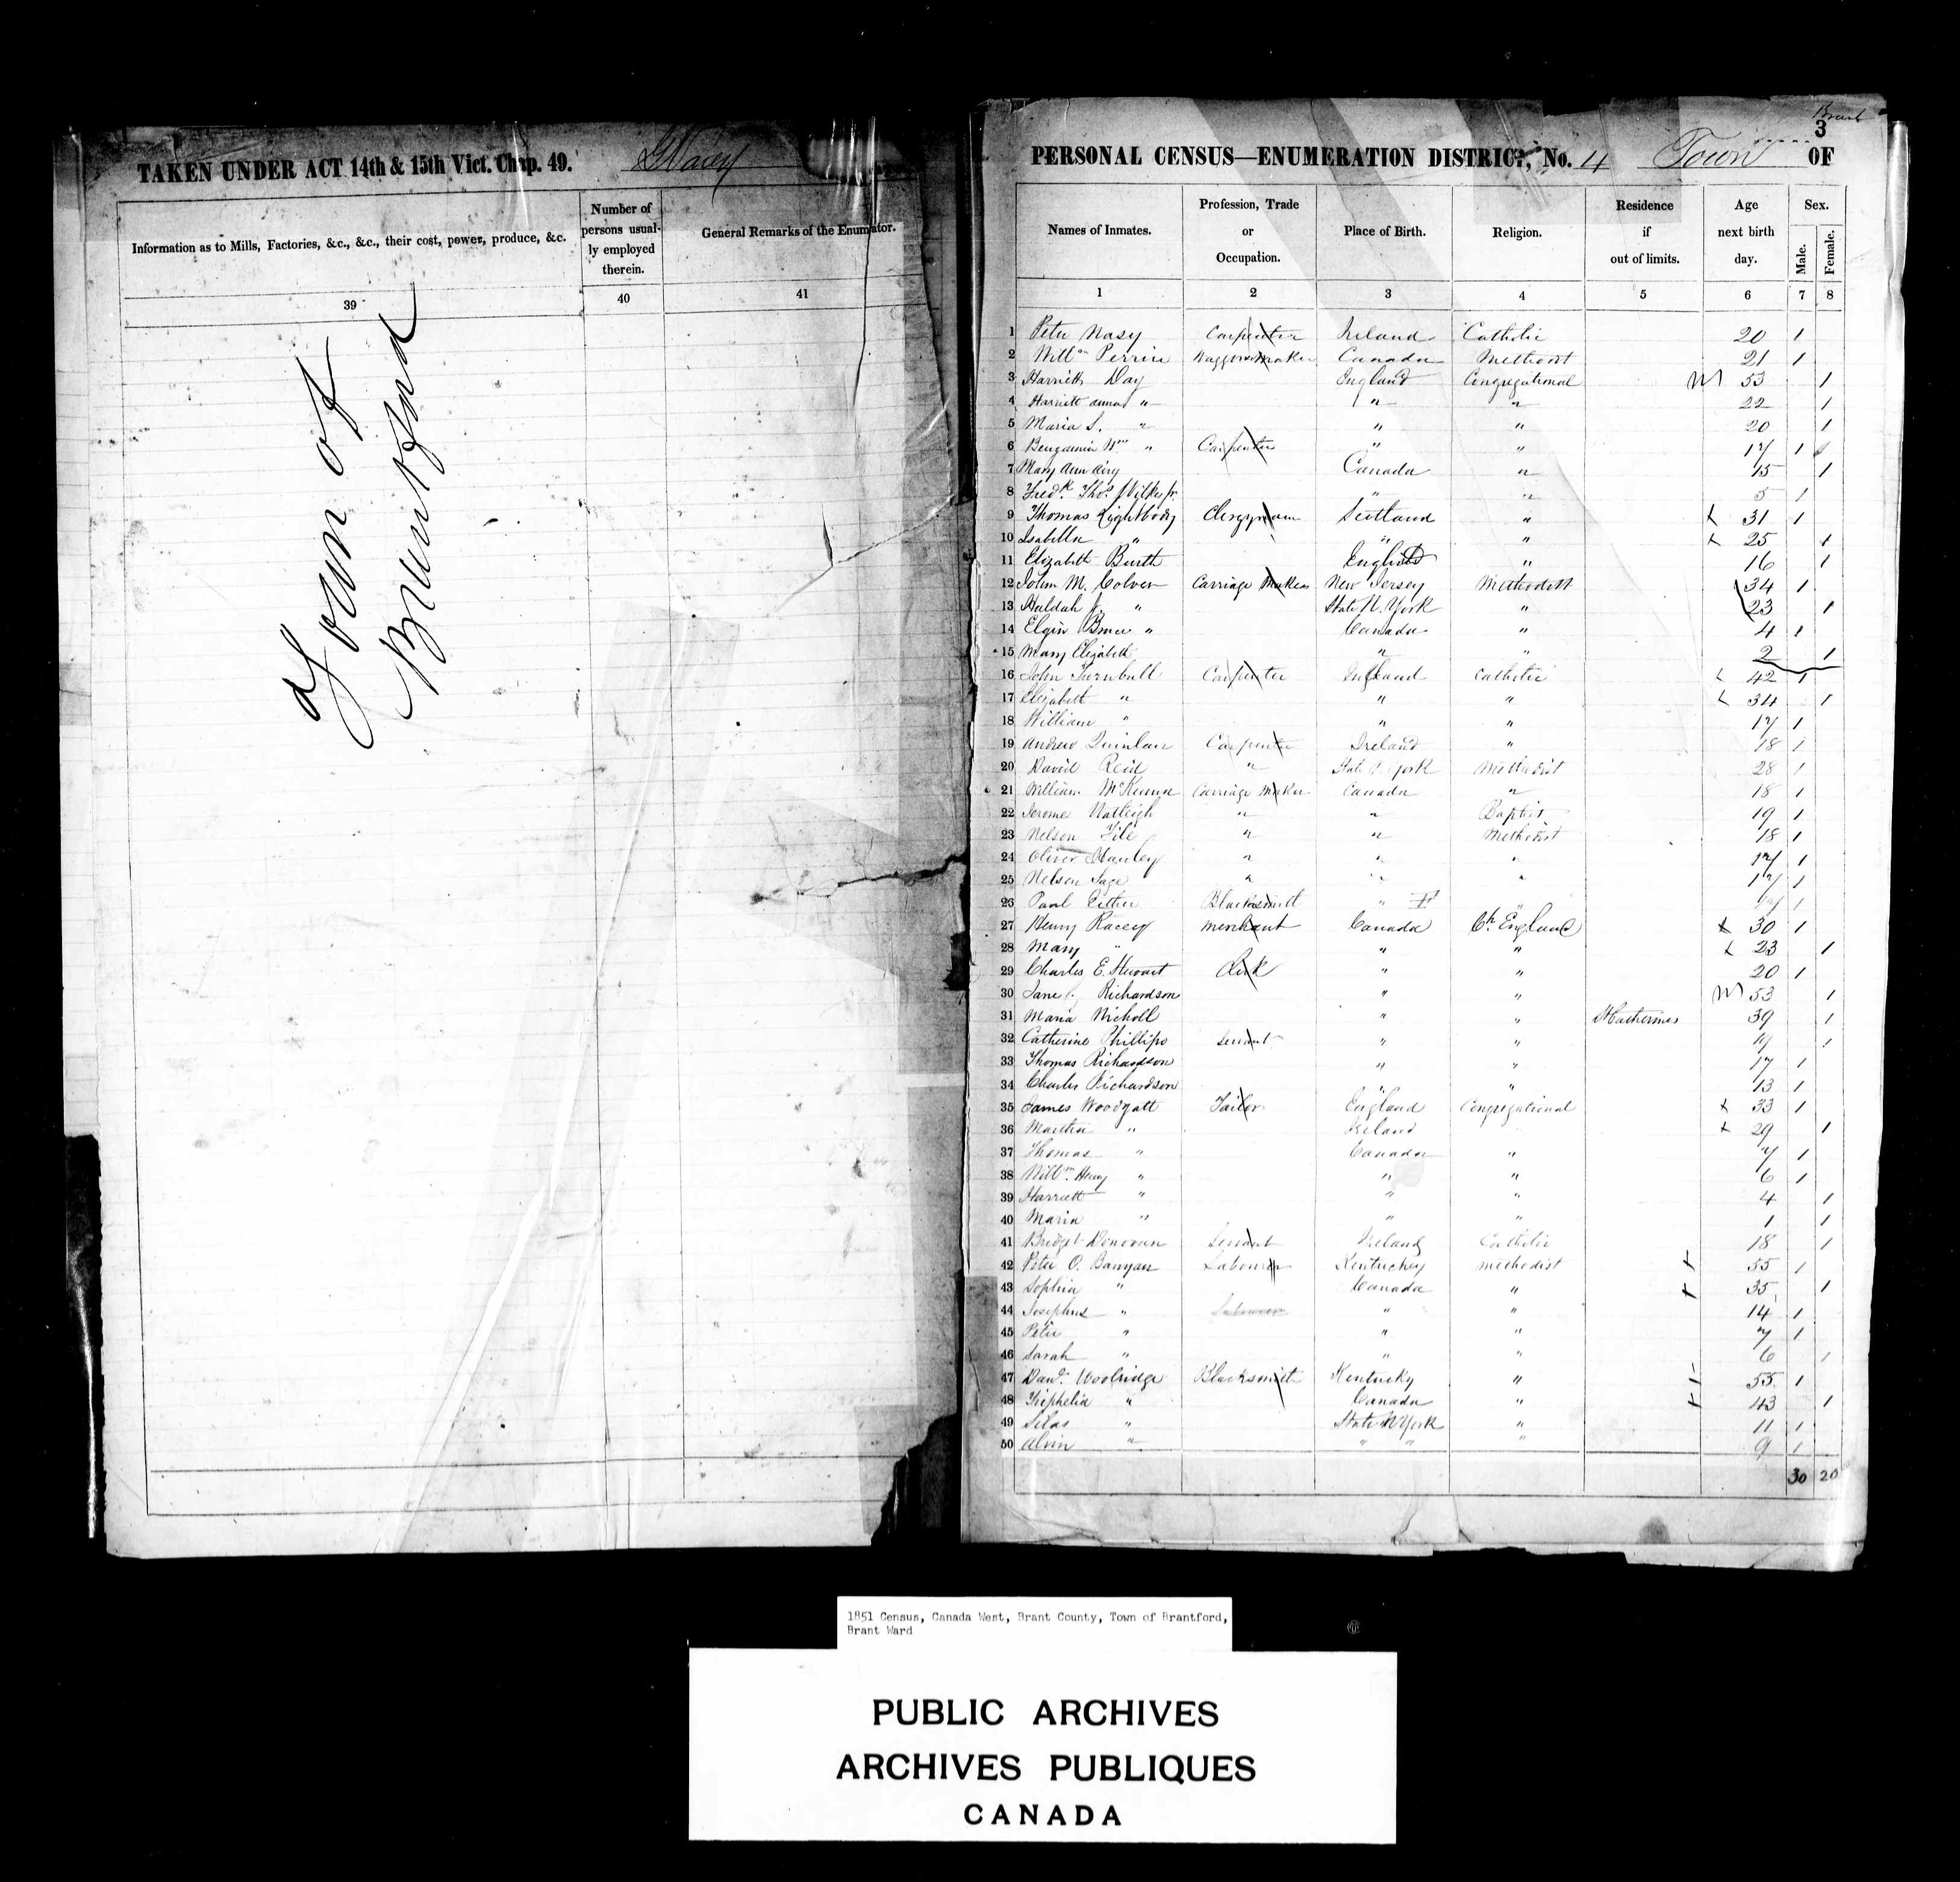 TAKEN UNDER ACT 14th & 15th Vict. Chap. 49.
Information as to Mills, Factories, &c., &c., their cost, power, produce, &c.
Number of persons usually employed therein.
General Remarks of the Enumerator.
39 40 41
Town of
Brantford
Brant
3
PERSONAL CENSUS—ENUMERATION DISTRICT, No. 4 Town OF
Names of Inmates. Profession, Trade or Occupation. Place of Birth. Religion. Residence if out of limits. Age next birth day. Sex. Male. Female.
1 2 3 4 5 6 7 8
1 Peter Carpenter Ireland Catholic 20 1
2 Willm Perrin Waggon Maker Canada Methodist 21 1
3 Harriett Day England Congregational M 53 1
4 Harriett Anna " " " 22 1
5 Maria S. " " " 20 1
6 Benjamin Wm " Carpenter " " 17 1
7 Mary Ann Canada " 15 1
8 Fredk Thos Wilkes jr. " " 5 1
9 Thomas Lightbody Clergyman Scotland " x 31 1
10 Isabella " " " x 25 1
11 Elizabeth England " 16 1
12 John M. Colver Carriage Maker New Jersey Methodist 34 1
13 Huldah J. " State N. York " 23 1
14 Elgin Bruce " Canada " 4 1
15 Mary Elizabeth " " 2 1
16 John Turnbull Carpenter England Catholic x 42 1
17 Elizabeth " " " x 34 1
18 William " " " 17 1
19 Andrew Quinlan Carpenter Ireland " 18 1
20 David Reid " State N. York Methodist 28 1
21 William Carriage Maker Canada " 18 1
22 Jerome " " Baptist 19 1
23 Nelson File " " Methodist 18 1
24 Oliver " " " 17 1
25 Nelson Sage " " " 17 1
26 Paul Blacksmith " " 1
27 Henry Racey Merchant Canada Ch England x 30 1
28 Mary " " " x 23 1
29 Charles E. Stewart Clerk " " 20 1
30 Jane Richardson " " M 53 1
31 Maria Nicholl " " St Catherines 39 1
32 Catherine Phillips Servant " " 1
33 Thomas Richardson " " 17 1
34 Charles Richardson " " 13 1
35 James Woodyatt Tailor England Congregational x 33 1
36 Martha " Ireland x 29 1
37 Thomas " Canada " 7 1
38 Willm Henry " " " 6 1
39 Harriett " " " 4 1
40 Maria " " " 1 1
41 Bridget Donovan Servant Ireland Catholic 18 1
42 Peter O. Banyan Labourer Kentuckey Methodist 55 1
43 Sophia " Canada " 35 1
44 Josephus " Labourer " " 14 1
45 Peter " " " 7 1
46 Sarah " " " 6 1
47 Danl Woolridge Blacksmith Kentucky " 55 1
48 " Canada " 43 1
49 Silas " State N York " 11 1
50 Alvin " " " " 9 1
30 20
1851 Census, Canada West, Brant County, Town of Brantford,
Brant Ward
PUBLIC ARCHIVES
ARCHIVES PUBLIQUES
CANADA